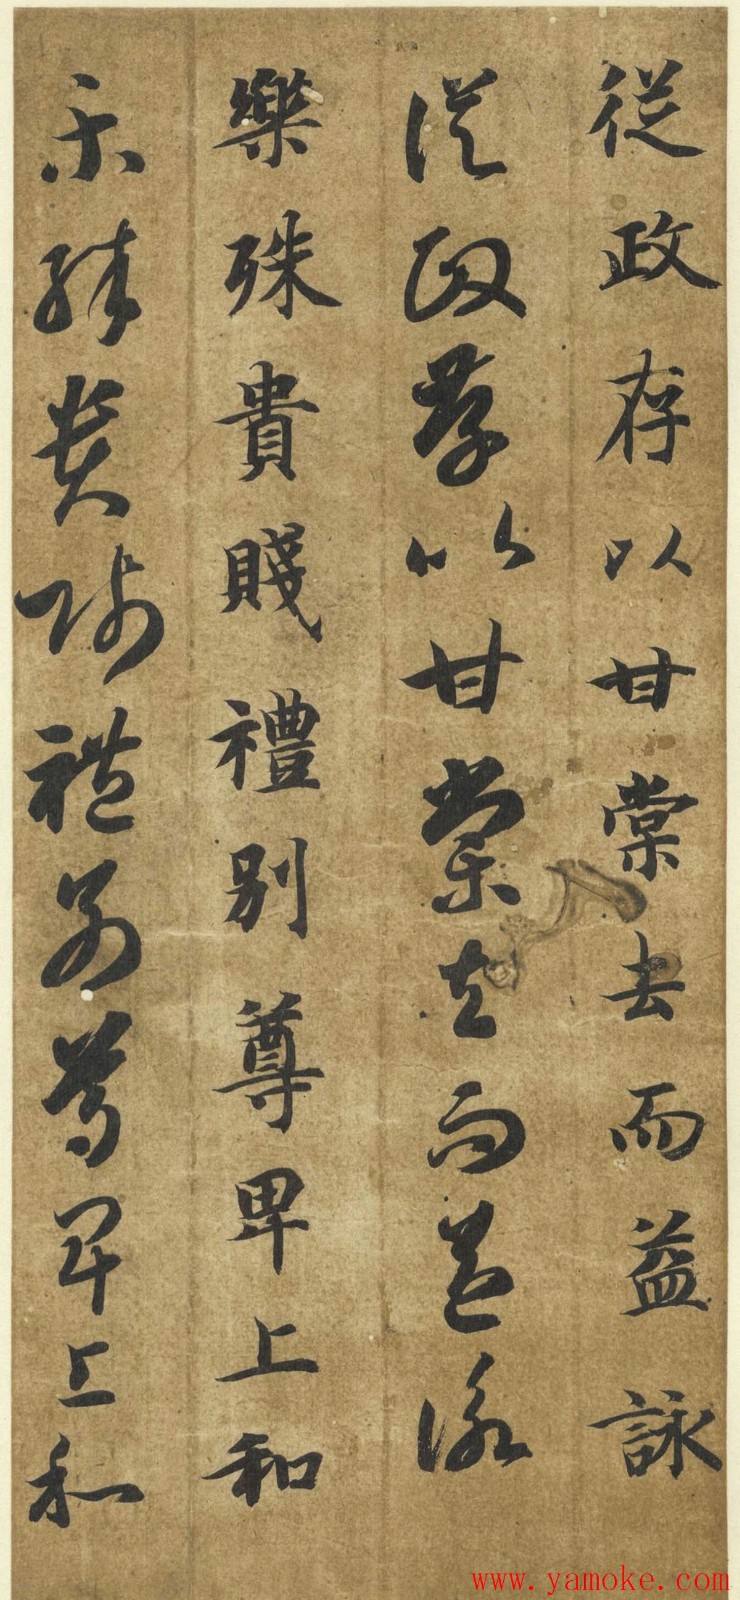 從政存以甘棠去而益詠
從政存以甘棠去而益詠
樂殊貴賤禮別尊卑上和
樂殊貴賤禮別尊卑上和
www.yamoke.com